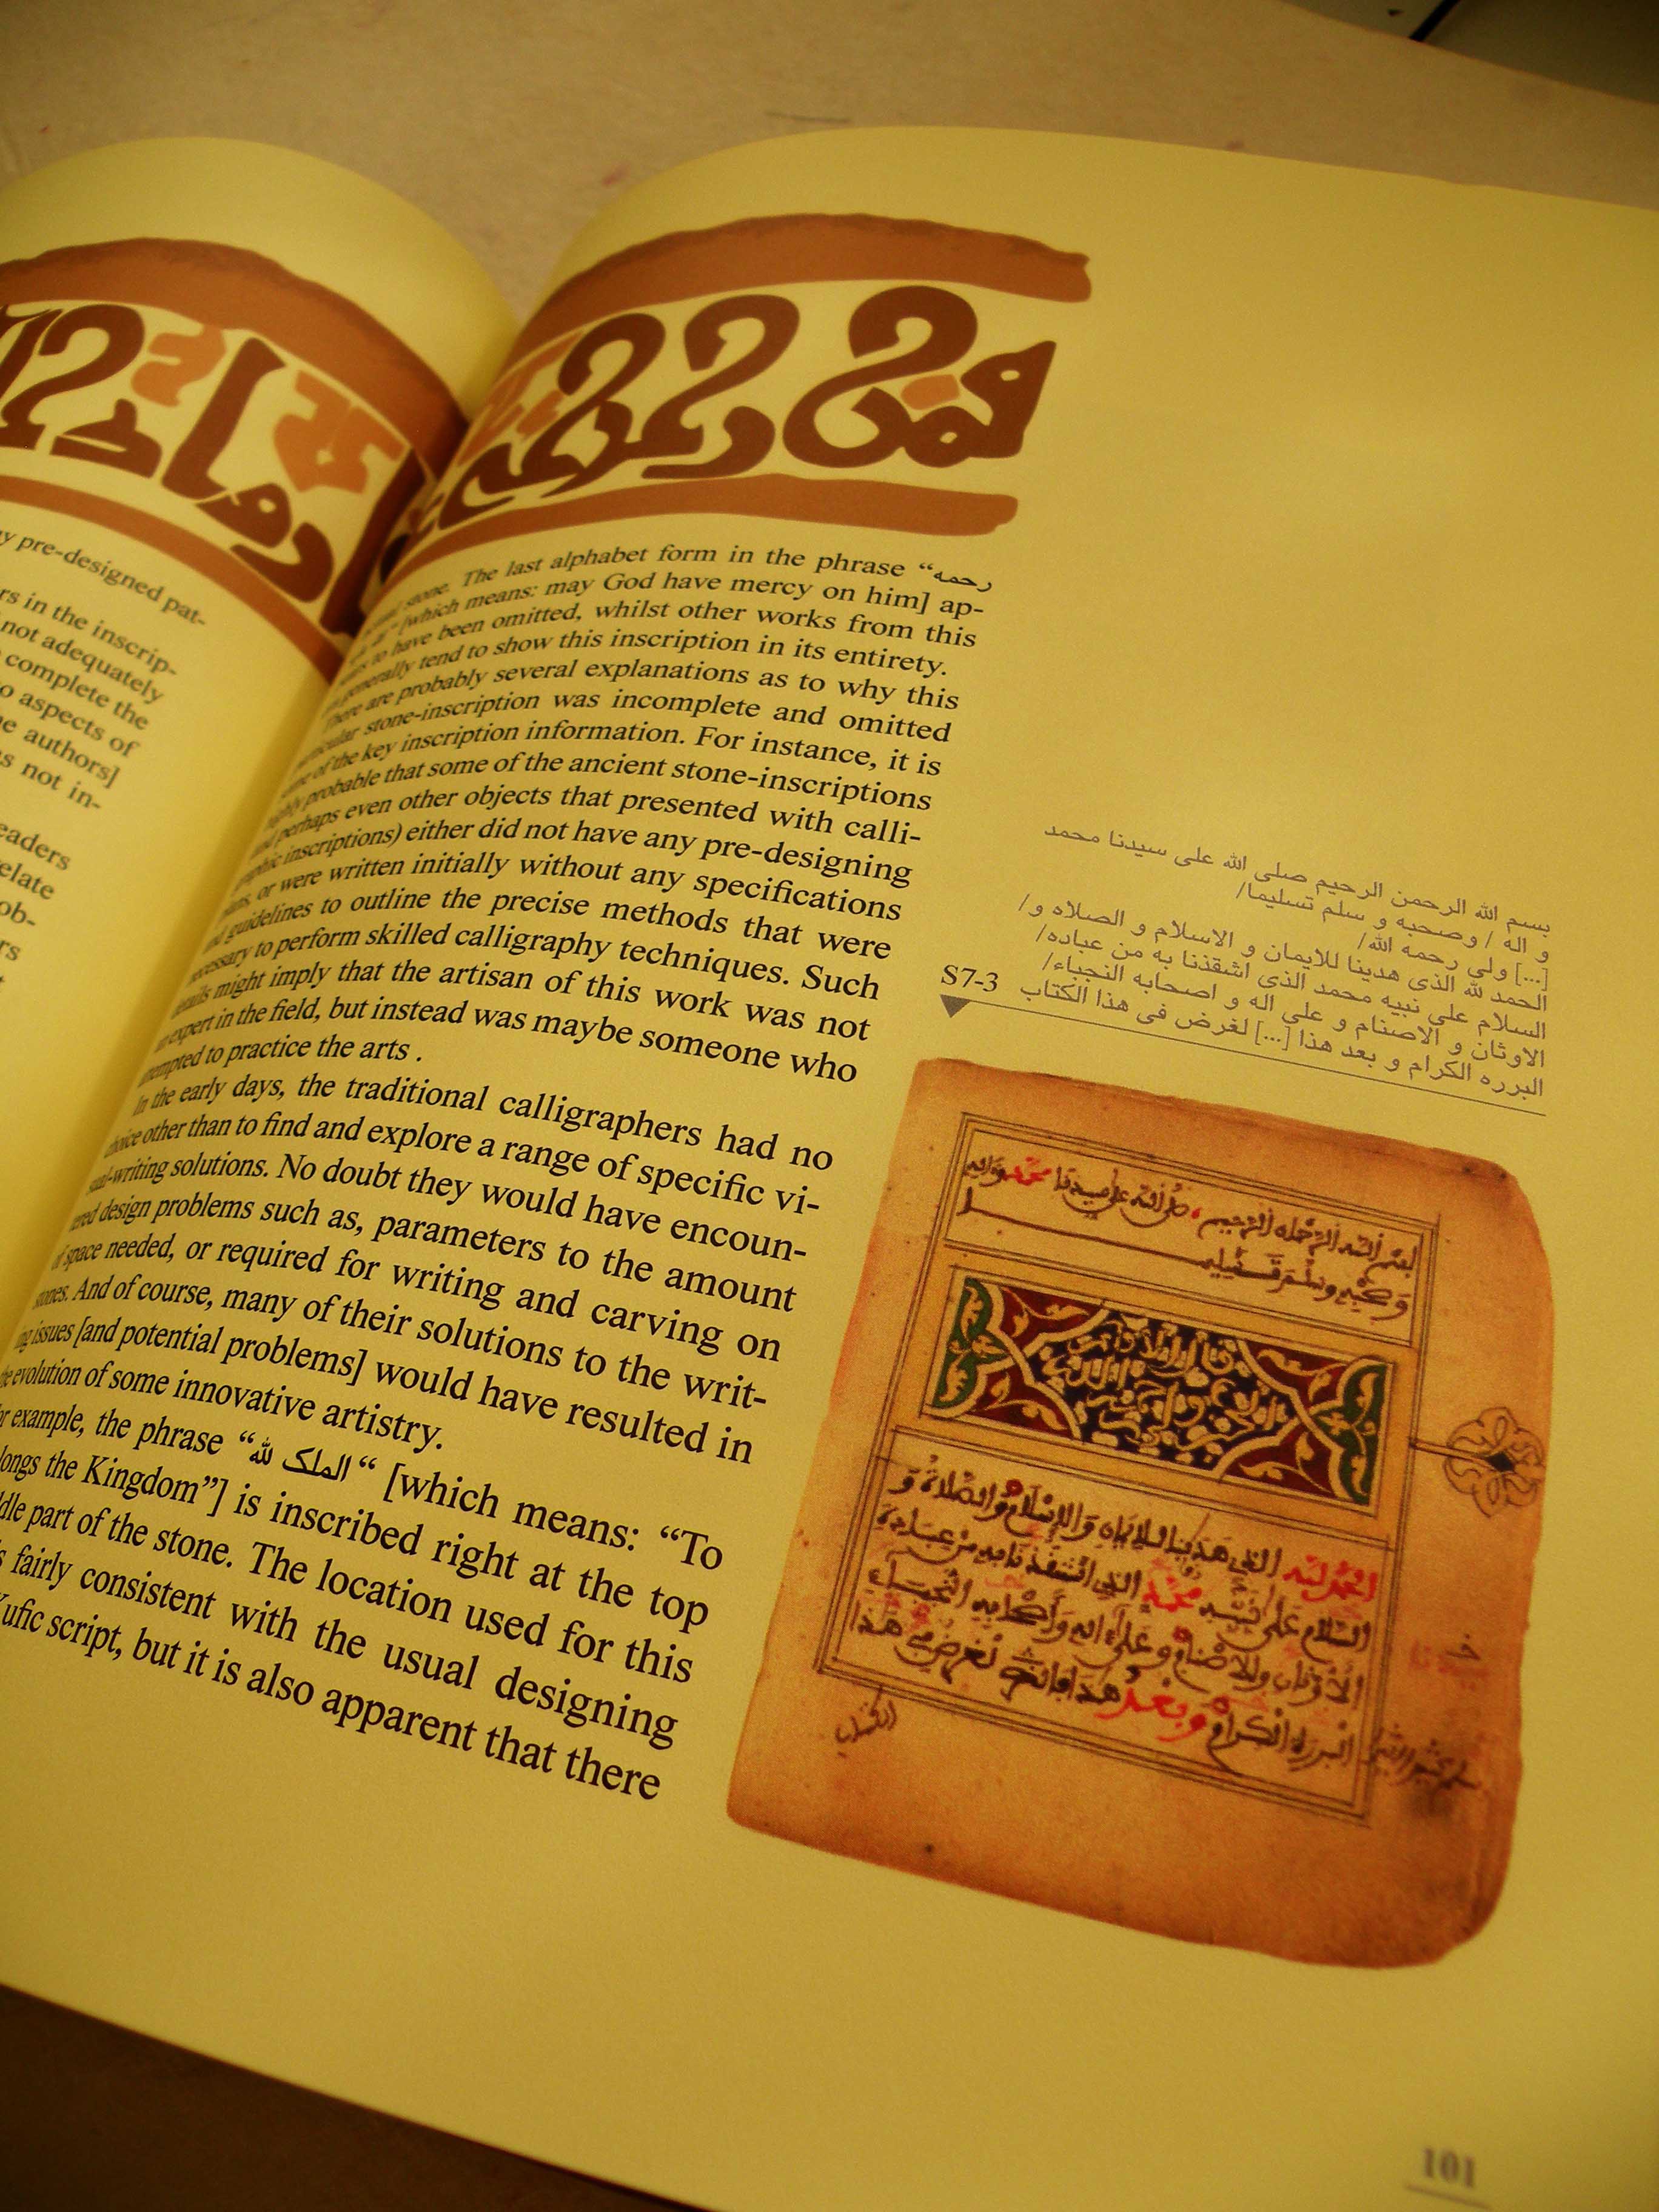 y pre-designed pat-
rs in the inscrip-
not adequately
complete the
o aspects of
e authors]
s not in-
eaders
elate
ob-
rs
stone. The last alphabet form in the phrase “رحمه
[which means: may God have mercy on him] ap-
to have been omitted, whilst other works from this
generally tend to show this inscription in its entirety.
There are probably several explanations as to why this
particular stone-inscription was incomplete and omitted
some of the key inscription information. For instance, it is
highly probable that some of the ancient stone-inscriptions
and perhaps even other objects that presented with calli-
graphic inscriptions) either did not have any pre-designing
plans, or were written initially without any specifications
and guidelines to outline the precise methods that were
necessary to perform skilled calligraphy techniques. Such
details might imply that the artisan of this work was not
an expert in the field, but instead was maybe someone who
attempted to practice the arts .
In the early days, the traditional calligraphers had no
choice other than to find and explore a range of specific vi-
sual-writing solutions. No doubt they would have encoun-
tered design problems such as, parameters to the amount
of space needed, or required for writing and carving on
stones. And of course, many of their solutions to the writ-
ing issues [and potential problems] would have resulted in
the evolution of some innovative artistry.
or example, the phrase “الملك لله“ [which means: “To
longs the Kingdom”] is inscribed right at the top
ddle part of the stone. The location used for this
s fairly consistent with the usual designing
Kufic script, but it is also apparent that there
بسم الله الرحمن الرحيم صلى الله على سيدنا محمد
و اله / وصحبه و سلم تسليما/
[...] ولى رحمه الله/
الحمد لله الذى هدينا للايمان و الاسلام و الصلاه و/
السلام على نبيه محمد الذى اشقذنا به من عباده/
الاوثان و الاصنام و على اله و اصحابه النجباء/
البرره الكرام و بعد هذا [...] لغرض فى هذا الكتاب
S7-3
بسم الله الرحمن الرحيم صلى الله على سيدنا محمد واله
وصحبه وسلم تسليما
الحمد لله الذي هدينا للايمان والاسلام والصلاة و
السلام على نبيه محمد الذي انتقذنا به من عبادة
الأوثان والاصنام وعلى اله وأصحابه النجباء
البررة الكرام وبعد هذا لغرض في هذا
الكتاب
101